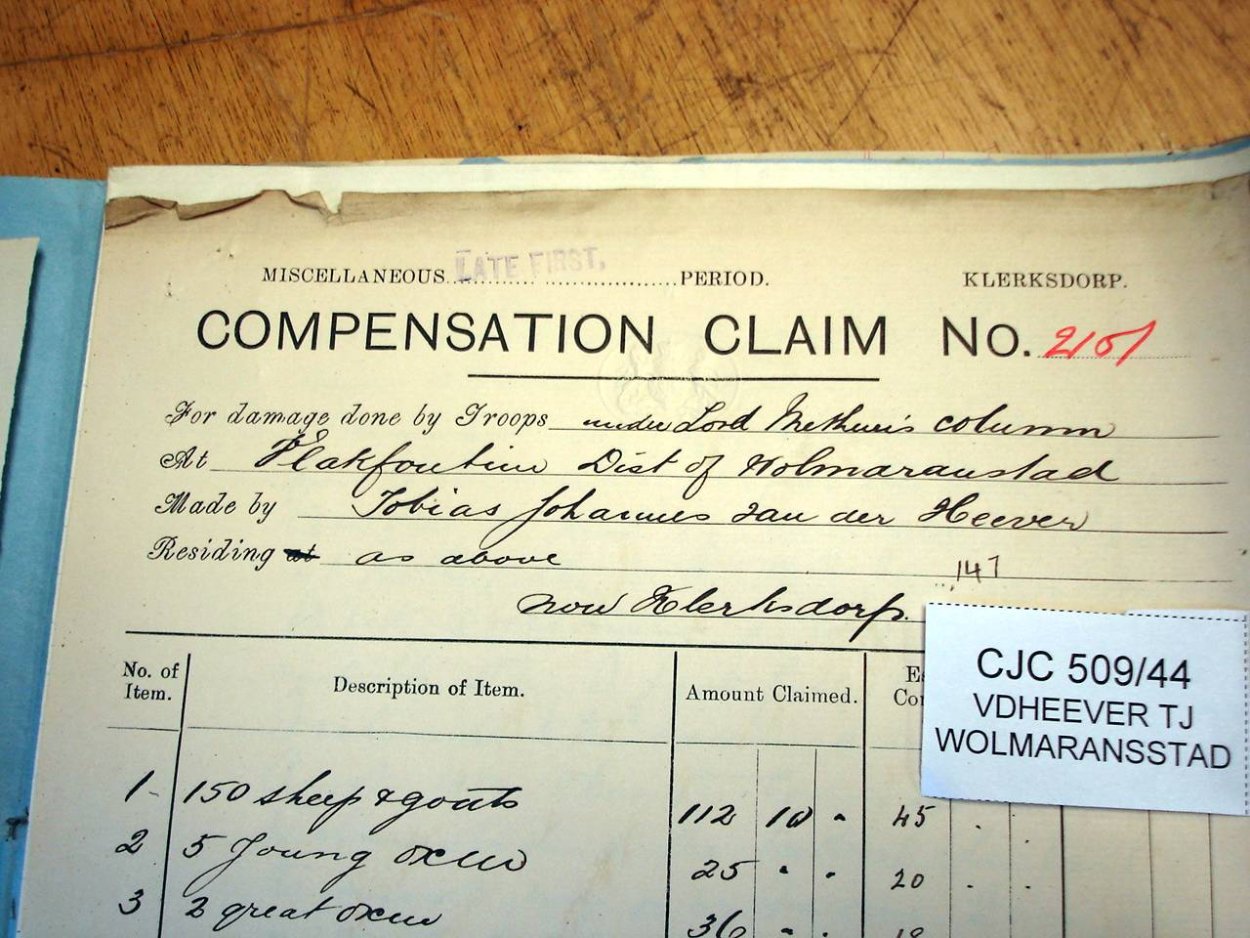 MISCELLANEOUS LATE FIRST, PERIOD. KLERKSDORP.
COMPENSATION CLAIM No. 2101
For damage done by Troops under Lord Methuen's column
At Vlakfontein Dist of Wolmaranstad
Made by Tobias Johannes van der Heever
Residing at as above
147
now Klerksdorp.
CJC 509/44
VDHEEVER TJ
WOLMARANSSTAD
No. of Item. Description of Item. Amount Claimed.
1 - 150 sheep & goats 112 10 - 45 . .
2 5 Young oxen 25 . . 20 . .
3 2 great oxen 36 - . 18